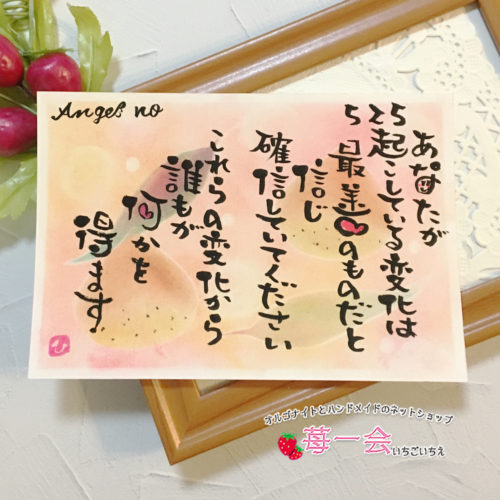 Angel no
525
あなたが
起こしている変化は
最善のものだと
信じ
確信していてください
これらの変化から
誰もが
何かを
得ます
ひ
オルゴナイトとハンドメイドのネットショップ
苺一会いちごいちえ